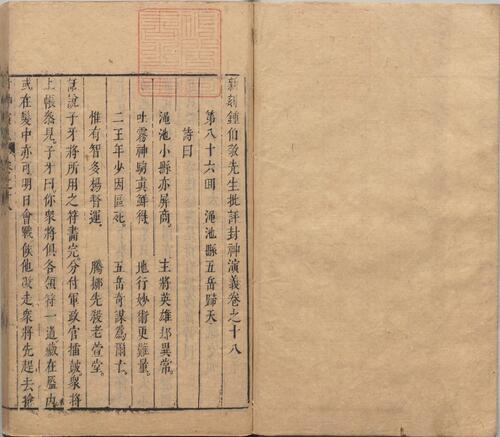 新刻鍾伯敬先生批評封神演義卷之十八
第八十六回 澠池縣五岳歸天
詩曰
澠池小縣亦屏商 主將英雄却異常
吐霧神騎真鮮得 地行妙術更難量
二王年少因區死 五岳奇謀為爾亡
惟有智多楊督運 騰挪先殺老萱堂
話說子牙將所用之符畫完分付軍政官擂鼓衆將
上帳參見子牙曰你衆將俱各領符一道藏在盔内
或在髮中亦可明日會戰候他敗走衆將先趕去搶